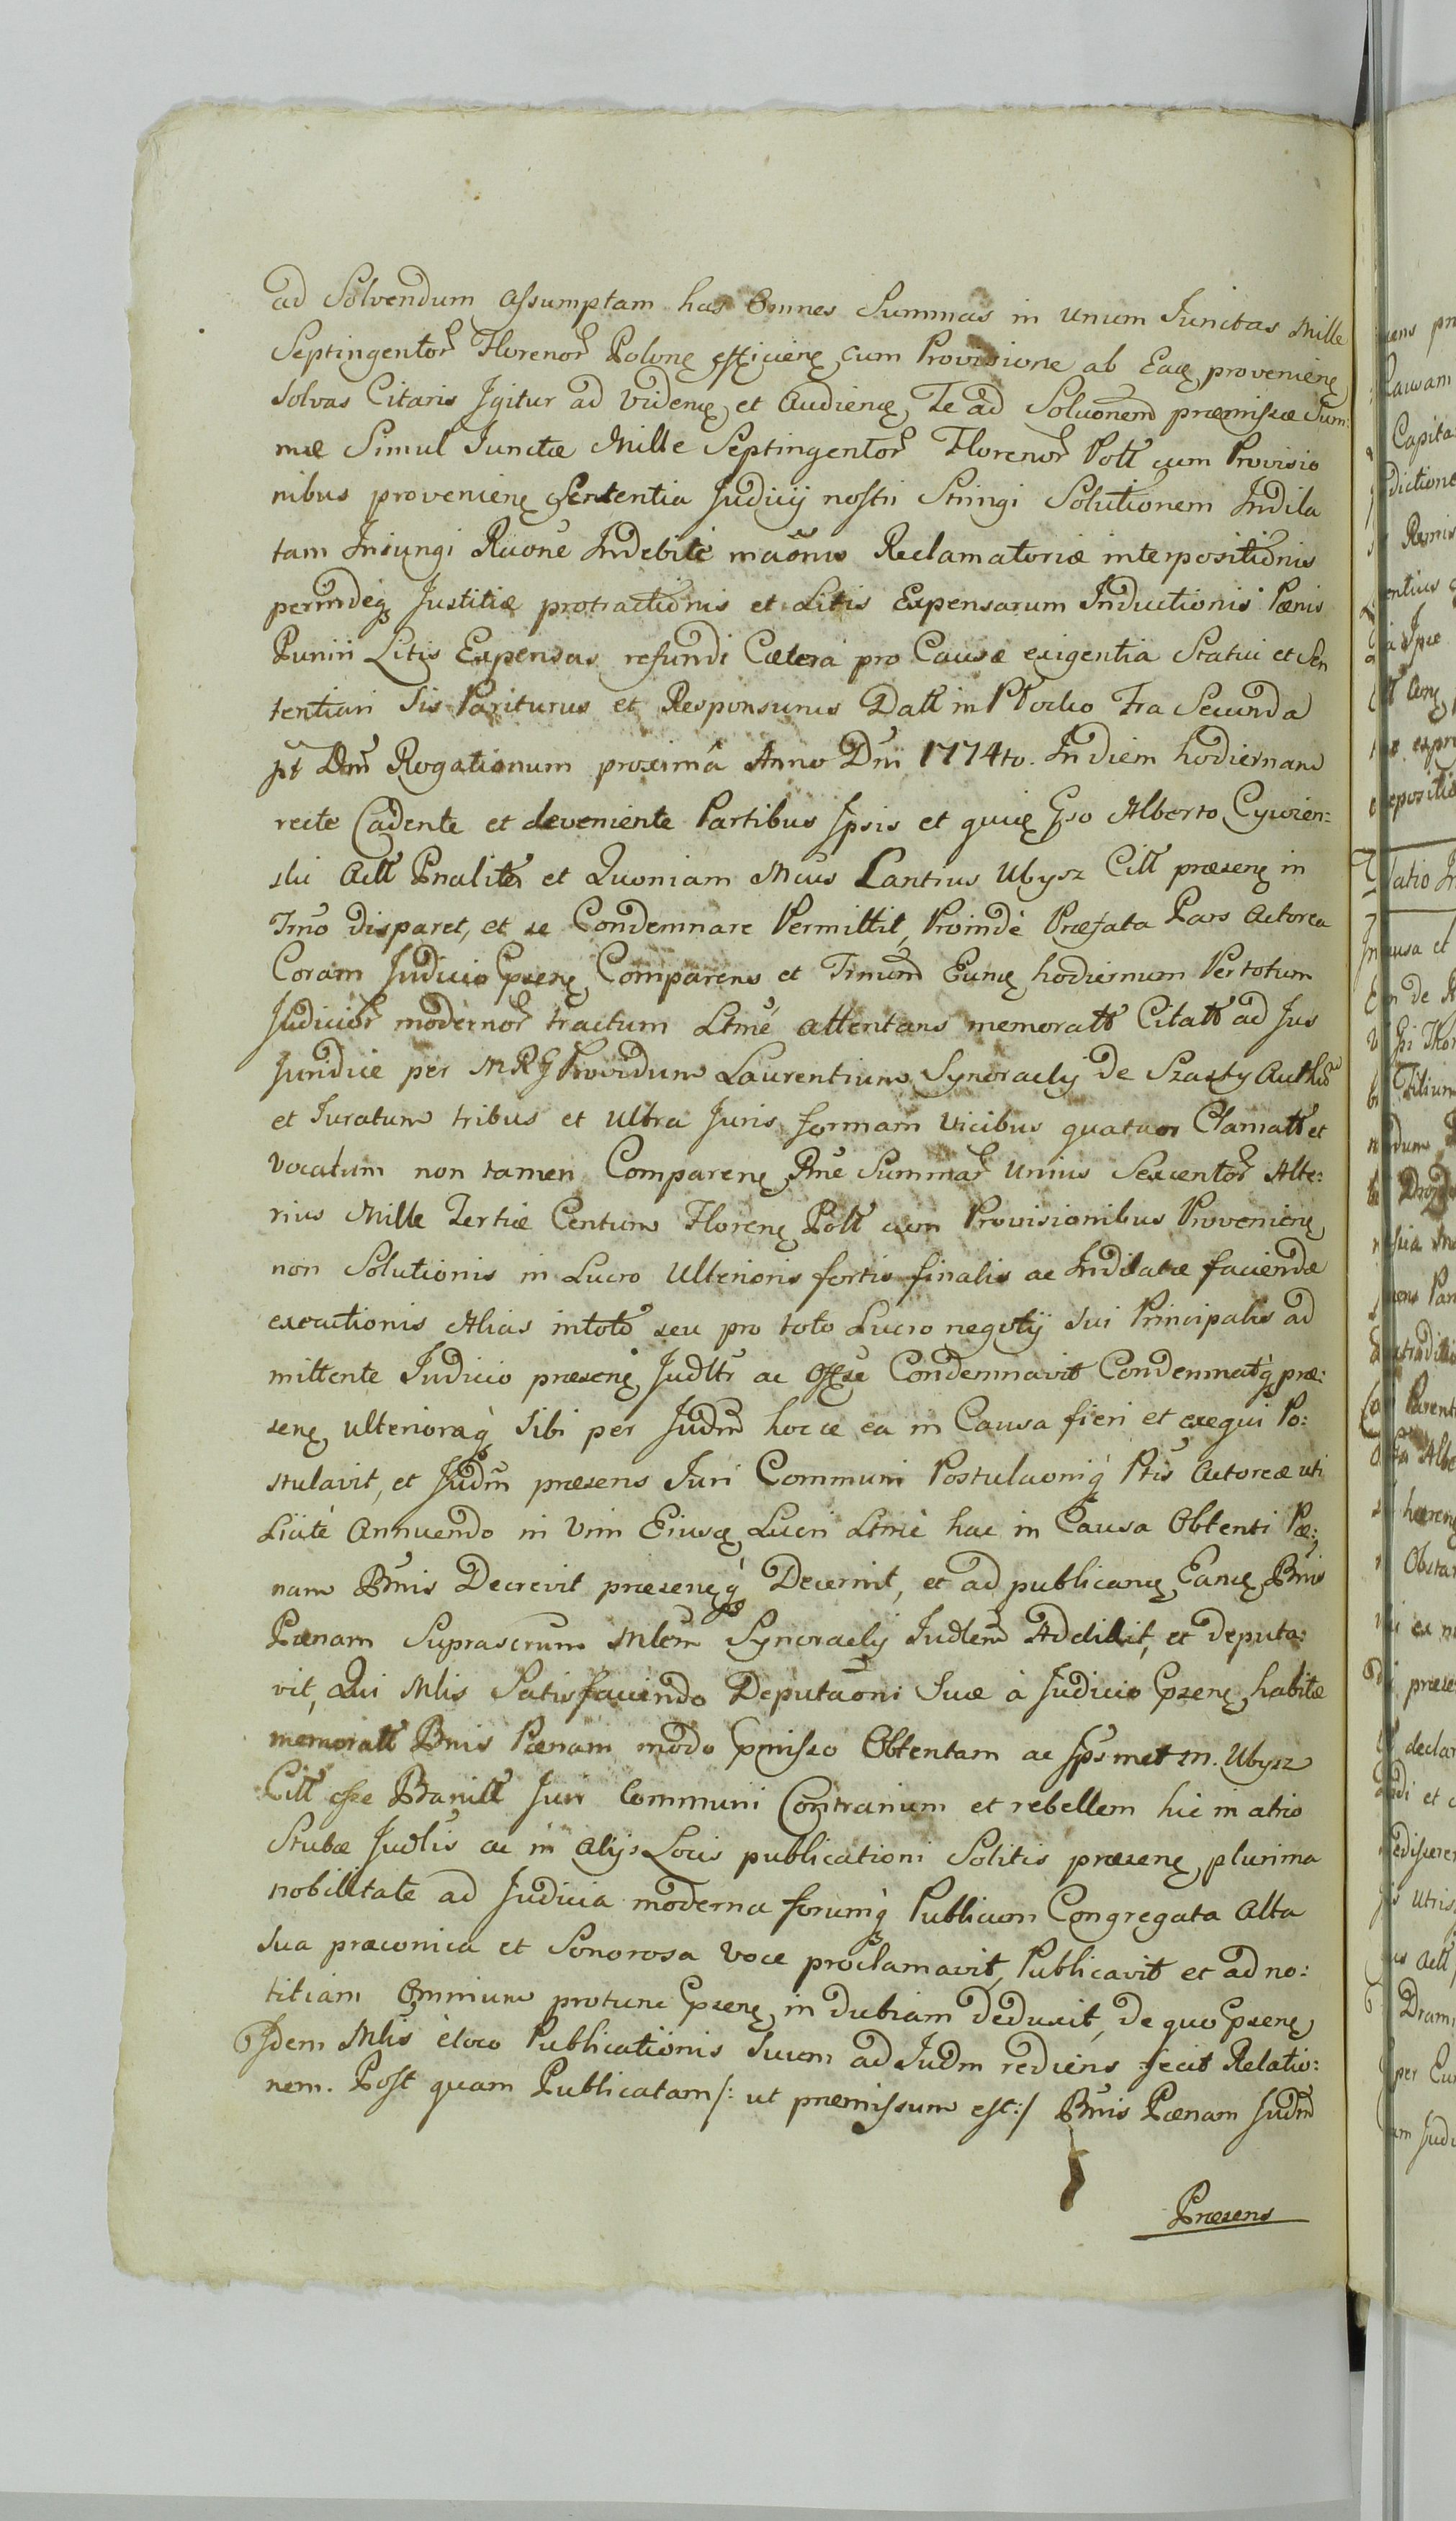 ad Solvendum assumptam has Omnes Summas in unum Junctas Mille
Septingentor Florenor Polonę efficienę cum Provisione ab Eadę provenienę
solvas Citaris Igitur ad videnę et Audienę, Te ad Soluonem præmissæ Sum:
mæ Simul Junctæ Mille Septingentor Florenor Poll cum Provisio
nibus provenienę Sententia Judicij nostri Stringi Solutionem Indila
tam Injungi Raõne Indebitè mãonis Reclamatoriæ interpositionis
perindeq Justitiæ protractionis et Litis Expensarum Inductionis Pœnis
Puniri Litis Expensas refundi Cætera pro Causæ exigentia Statui et Sen
tentiari Sis Pariturus et Responsurus Datt in Plocko Fra Secunda
pt Dm Rogationum proximâ Anno Dni 1774to. In diem hodiernam
recte Cadente et deveniente Partibus Ipsis et quidę Gso Alberto Cywien=
ski Actt Pnaliter et Quoniam Mcus Lantius Ubysz Citt præsenę in
Tmo disparet, et se Condemnare Permittit, Proindè Præfata Pars Actorea
Coram Judicio Præsenę Comparens et Tmum Eundę hodiernum Per totum
Judicior modernor tractum Ltmè attentans memoratt Citatt ad Jus
Juridice per MRG Providum Laurentium Syncracly de Szasty Authũ
et Juratum tribus et ultra Juris formam vicibus quatuor Clamatt et
vocatum non tamen Comparenę Rne Summar unius Sexcentor Alte:
rius Mille Tertiæ Centum Florenę Poll cum Provisionibus Provenienę
non Solutionis in Lucro Ulterioris fortis finalis ac Indilatæ faciendæ
executionis Alias in toto seu pro toto Lucro negotij sui Principalis ad
mittente Judicio præsenę Judltr ac Offse Condemnavit Condemnatq præ:
senę ulterioraq sibi per Judm hocce ea in Causa fieri et exequi Po:
stulavit, et Judm præsens Juri Communi Postulaoniq Ptis Actoreæ uti
Licitè Annuendo in Vim Eiusdę Lucri Ltmè hac in Causa Obtenti Pæ:
nam Bnis Decrevit præsenęq Decernit, et ad publicandę Eandę Bnis
Pœnam Suprascrum Mlem Syncracly Judlem Addidit, et deputa:
vit, Qui Mlis Satisfaciendo Deputaoni Suæ à Judicio Præsenę habitæ
memoratt Bnis Pœnam modo præmisso Obtentam ac Ipsmet M. Ubysz
Citt esse Banitt Juri Communi Contrarium et rebellem hic in atrio
Stubæ Judlis ac in alijs Locis publicationi Solitis præsenę plurima
nobilitate ad Judicia moderna forumq Publicum Congregata Alta
sua præconica et Sonorosa voce proclamavit, Publicavit et ad no:
titiam Omnium protunc Præsenę in dubiam deduxit, de quo Præsenę
Idem Mlis è loco Publicationis Suum ad Judm rediens fecit Relatio:
nem. Post quam Publicatam /: ut præmissum est:/ Bnis Pœnam Judm
Præsens